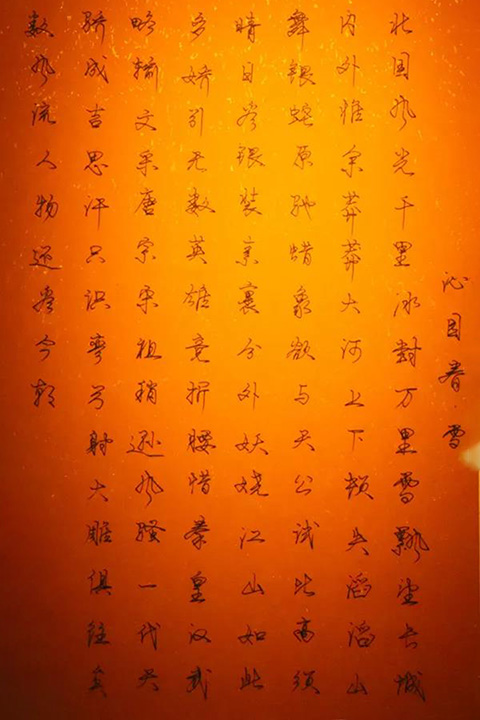 沁园春·雪
北国风光千里冰封万里雪飘望长城
内外惟余莽莽大河上下顿失滔滔山
舞银蛇原驰蜡象欲与天公试比高须
晴日看银装素裹分外妖娆江山如此
多娇引无数英雄竞折腰惜秦皇汉武
略输文采唐宗宋祖稍逊风骚一代天
骄成吉思汗只识弯弓射大雕俱往矣
数风流人物还看今朝